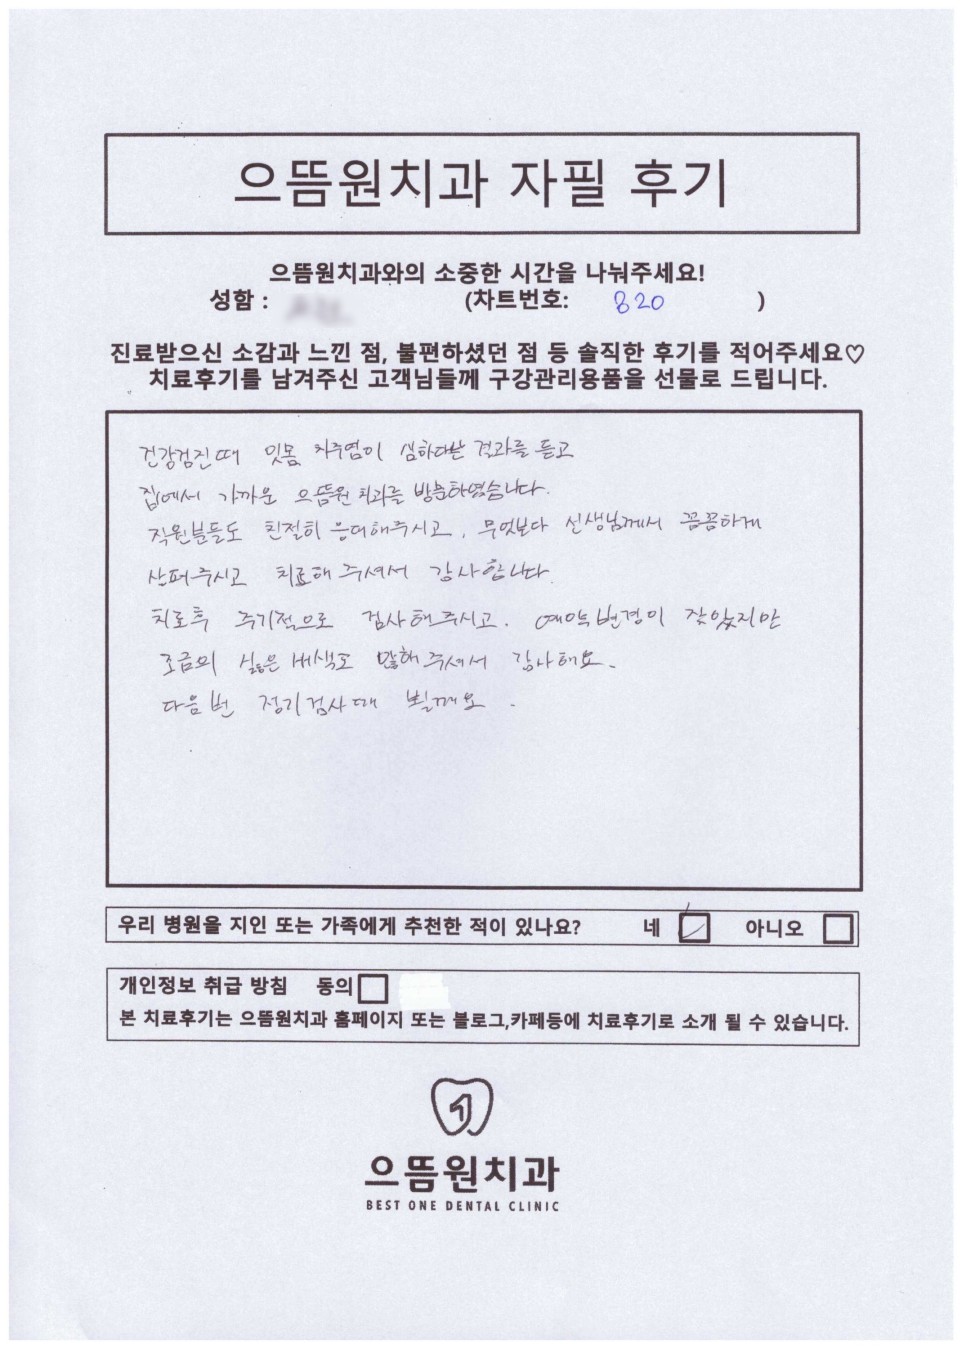 으뜸원치과 자필 후기
으뜸원치과와의 소중한 시간을 나눠주세요!
성함 : (차트번호: 820 )
진료받으신 소감과 느낀 점, 불편하셨던 점 등 솔직한 후기를 적어주세요♡
치료후기를 남겨주신 고객님들께 구강관리용품을 선물로 드립니다.
건강검진때 잇몸 치주염이 심하다는 결과를 듣고
집에서 가까운 으뜸원 치과를 방문하였습니다.
직원분들도 친절히 응대해주시고, 무엇보다 선생님께서 꼼꼼하게
살펴주시고 치료해 주셔서 감사합니다.
치료후 주기적으로 검사해주시고. 예약변경이 잦았지만
조금의 싫은 내색도 않해주셔서 감사해요.
다음번 정기검사때 뵐께요.
우리 병원을 지인 또는 가족에게 추천한 적이 있나요? 네 아니오
개인정보 취급 방침 동의
본 치료후기는 으뜸원치과 홈페이지 또는 블로그,카페등에 치료후기로 소개 될 수 있습니다.
으뜸원치과
BEST ONE DENTAL CLINIC